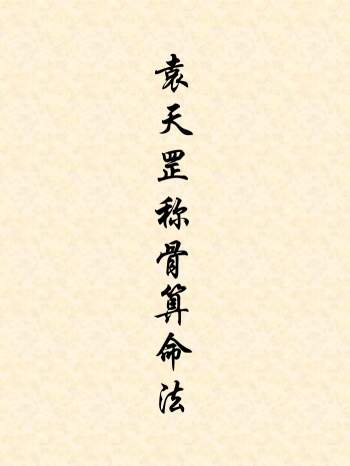 袁天罡称骨算命法